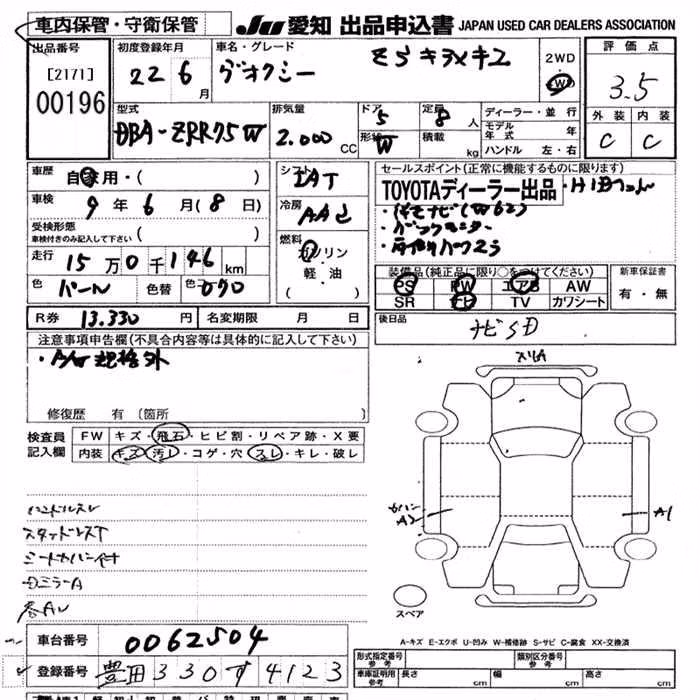 車内保管・守衛保管
JU 愛知 出品申込書 JAPAN USED CAR DEALERS ASSOCIATION
出品番号 初度登録年月 車名・グレード 2WD 評価点
[2171] 22 6月 ヴオクシー ZSキラメキZ 4WD 3.5
00196
型式 排気量 ドア 5 定員 8人 ディーラー・並行 外装 内装
DBA-ZRR75W 2.000CC 形状 W 積載 kg モデル年式 年 C C
ハンドル 左・右
車歴 自家用・( ) シフト IAT セールスポイント(正常に機能するものに限ります)
車検 9年6月(8日) 冷房 AAC TOYOTAディーラー出品
受検形態 車検付きのみ記入して下さい ( )
走行 15万0千146km 燃料 ガソリン・軽・油 ( ) ・バックモニター
色 パール 色替 色コ- 070 装備品(純正品に限り○をつけてください) 新車保証書
PS PW エアB AW 有・無
SR ナビ TV カワシート
R券 13.330円 名変期限 月 日 後日品
ナビSD
注意事項申告欄(不具合内容等は具体的に記入して下さい)
・A/W規格外
修復歴 有 (箇所 )
検査員記入欄 FW キズ・飛石・ヒビ割・リペア跡・X要
内装 キズ・汚レ・コゲ・穴・スレ・キレ・破レ
スリA
A2 A1
ハンドルスレ
スタッドレスT
シートカバー付
DミラーA
スペア
A-キズ E-エクボ U-凹み W-補修跡 S-サビ C-腐食 XX-交換済
車台番号 0062504
登録番号 豊田 330 す 4123
形式指定番号 参考 類別区分番号 参考
車庫証明用 参考 長さ cm 幅 cm 高さ cm